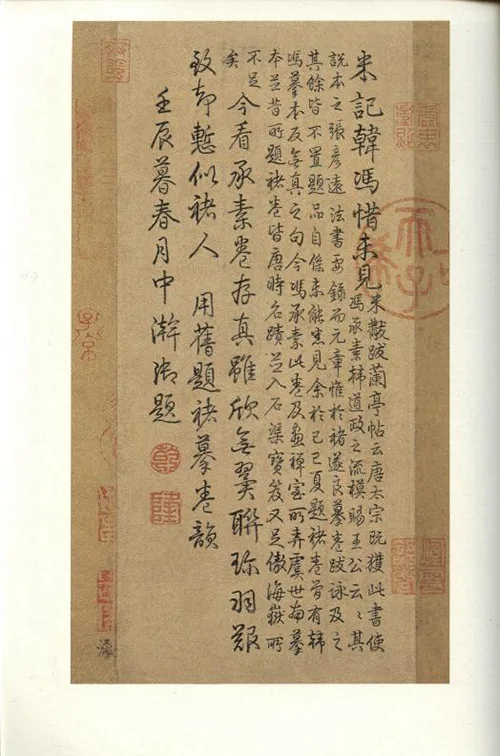 米記韓馮惜未見
米黻跋蘭亭帖云唐太宗既獲此書使
馮承素韓道政之流模賜王公云云其
説本之張彥遠法書要錄而元章惟於褚遂良摹卷跋詠及之
其餘皆不置題品自係未能悉見余於己巳夏題褚卷曽有韓
馮摹本反無真之句今馮承素此卷及畫禪室所弆虞世南摹
本並昔所題褚卷皆唐時名蹟並入石渠寶笈又足傲海嶽所
不足
矣
今看承素卷存真雖欣無翼聯珎羽艱
致却慙似褚人 用舊題褚摹卷韻
壬辰暮春月中澣御題
乾
隆